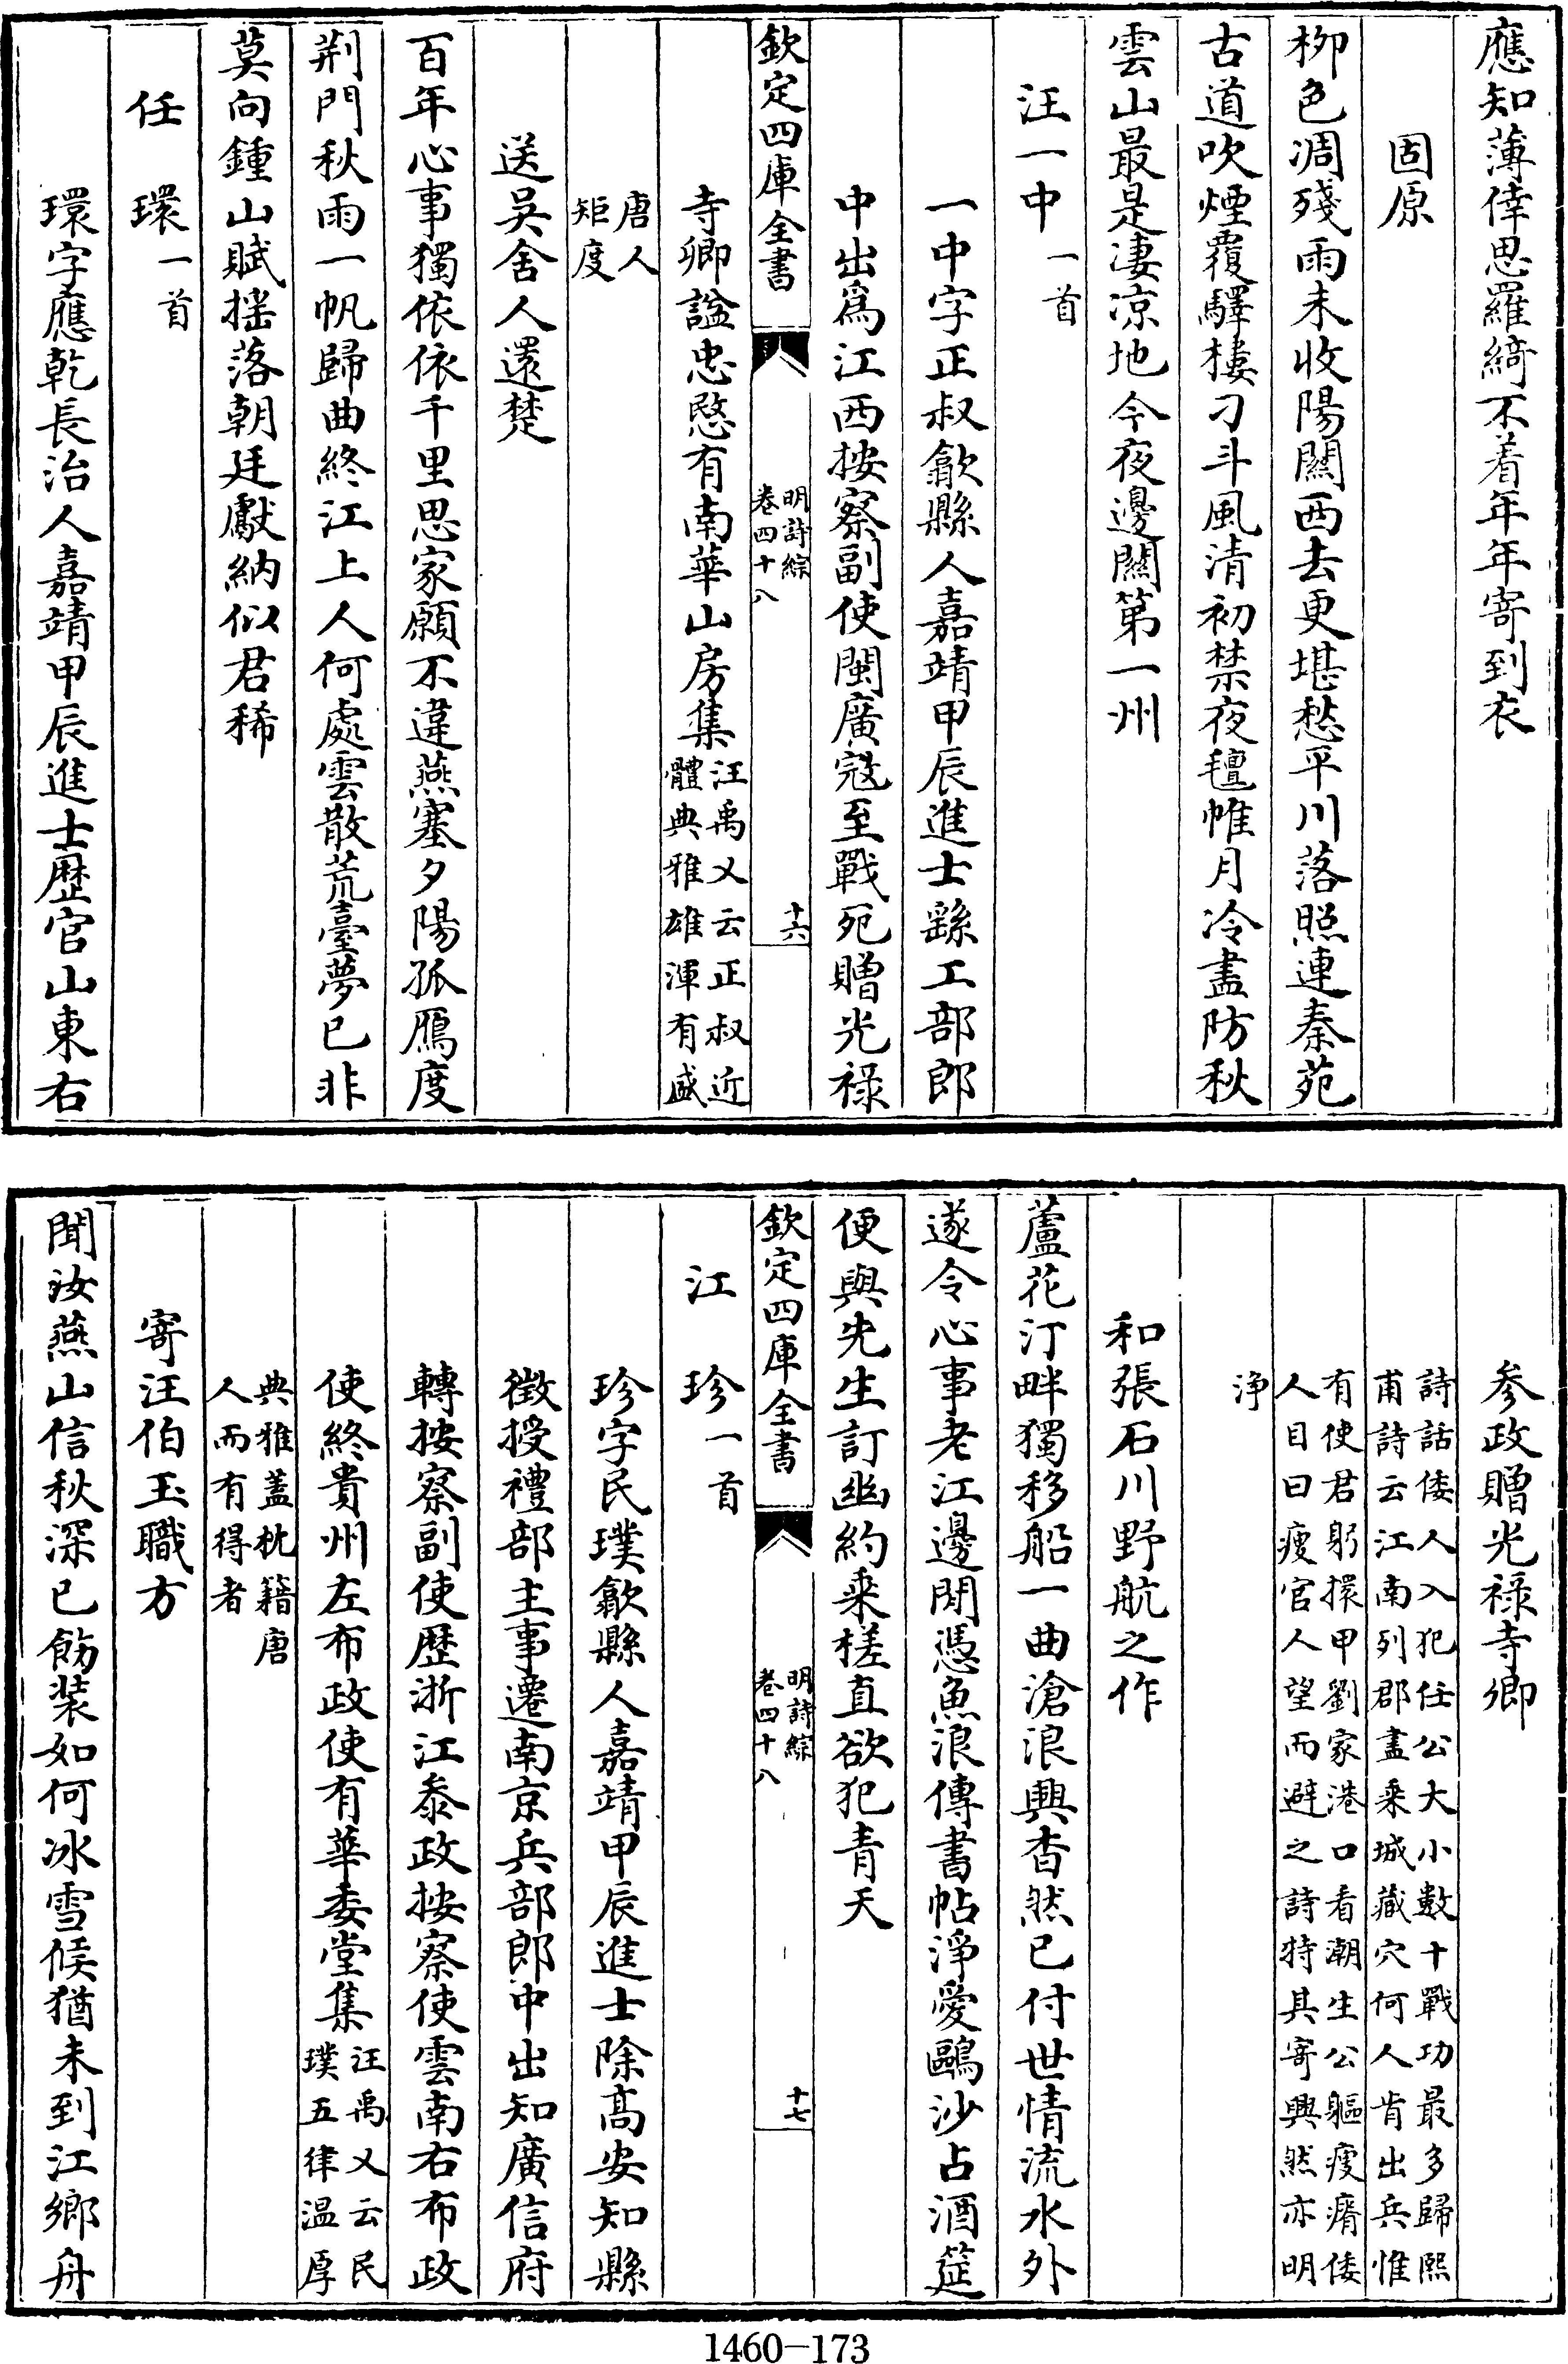 應知薄倖思羅綺不着年年寄到衣
固原
栁色凋殘雨未收陽闗西去更堪愁平川落照連秦苑
古道吹煙覆驛樓刁斗風清初禁夜氊帷月冷盡防秋
雲山最是凄凉地今夜邊闗第一州
汪一中一首
一中字正叔歙縣人嘉靖甲辰進士繇工部郎
中出爲江西按察副使閩廣宼至戰死贈光禄
欽定四庫全書
明詩綜
卷四十八
十六
寺卿諡忠愍有南華山房集汪禹乂云正叔近
體典雅雄渾有盛
唐人
矩度
送吳舍人還楚
百年心事獨依依千里思家願不違燕塞夕陽孤鴈度
荆門秋雨一帆歸曲終江上人何處雲散荒臺夢已非
莫向鍾山賦摇落朝廷獻納似君稀
任環一首
環字應乾長治人嘉靖甲辰進士歴官山東右
参政贈光禄寺卿
詩話倭人入犯任公大小數十戰功最多歸熙
甫詩云江南列郡盡乘城藏穴何人肯出兵惟
有使君躬擐甲劉家港口看潮生公軀瘦瘠倭
人目曰瘦官人望而避之詩特其寄興然亦明
浄
和張石川野航之作
蘆花汀畔獨移船一曲滄浪興杳然已付世情流水外
遂令心事老江邊閒憑魚浪傳書帖淨愛鷗沙占酒筵
便與先生訂幽約乘槎直欲犯青天
欽定四庫全書
明詩綜
卷四十八
十七
江珍一首
珍字民璞歙縣人嘉靖甲辰進士除髙安知縣
徴授禮部主事遷南京兵部郎中出知廣信府
轉按察副使歴浙江叅政按察使雲南右布政
使終貴州左布政使有華委堂集汪禹乂云民
璞五律温厚
典雅葢枕籍唐
人而有得者
寄汪伯玉職方
聞汝燕山信秋深已飭装如何冰雪候猶未到江鄉舟
1460-173